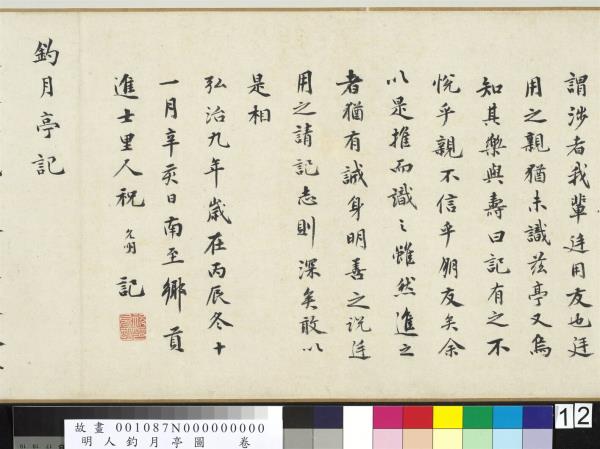 謂涉者我輩廷用友也廷
用之親猶未識茲亭又烏
知其樂與壽曰記有之不
悅乎親不信乎朋友矣余
以是推而識之雖然進之
者猶有誠身明善之說廷
用之請記志則深矣敢以
是相
弘治九年歲在丙辰冬十
一月辛亥日南至鄉貢
進士里人祝允明記
釣月亭記
故畫 001087N000000000
明人釣月亭圖 卷
12